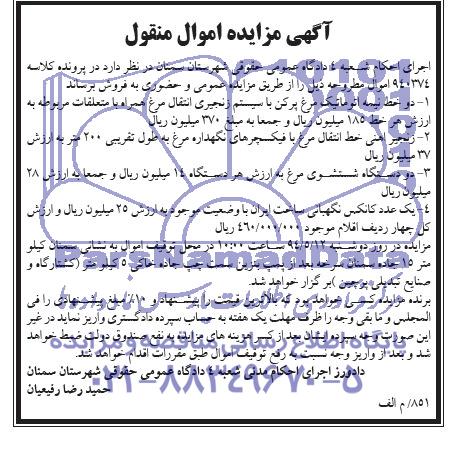 آگهی مزایده اموال منقول
اجرای احکام شعبه ٤ دادگاه عمومی حقوقی شهرستان سمنان در نظر دارد در پرونده کلاسه
٩٤٠٣٧٤ اموال مطروحه ذیل را از طریق مزایده عمومی و حضوری به فروش برساند
١- دو خط نیمه اتوماتیک مرغ پرکن با سیستم زنجیری انتقال مرغ همراه با متعلقات مربوطه به
ارزش هر خط ١٨٥ میلیون ریال و جمعا به مبلغ ٣٧٠ میلیون ریال
٢- زنجیر آهنی خط انتقال مرغ با فیکسچرهای نگهداره مرغ به طول تقریبی ٢٠٠ متر به ارزش
٣٧ میلیون ریال
٣- دو دستگاه شستشوی مرغ به ارزش هر دستگاه ١٤ میلیون ریال و جمعا به ارزش ٢٨
میلیون ریال
٤- یک عدد کانکس نگهبانی ساخت ایران با وضعیت موجود به ارزش ٢٥ میلیون ریال و ارزش
کل چهار ردیف اقلام موجود ٤٦٠/٠٠٠/٠٠٠ ریال
مزایده در روز دوشنبه ٩٤/٥/١٢ ساعت ١٠:٠٠ در محل توقیف اموال به نشانی سمنان کیلو
متر ١٥ جاده سمنان سرخه بعد از پمپ بنزین سمت چپ جاده خاکی ٥ کیلو متر (کشتارگاه و
صنایع تبدیلی پرچین) برگزار خواهد شد.
برنده مزایده کسی خواهد بود که بالاترین قیمت را پیشنهاد و ١٠٪ مبلغ پیشنهادی را فی
المجلس و ما بقی وجه را ظرف مهلت یک هفته به حساب سپرده دادگستری واریز نماید در غیر
این صورت وجه سپرده ایشان بعد از کسر هزینه های مزایده به نفع صندوق دولت ضبط خواهد
شد و بعد از واریز وجه نسبت به رفع توقیف اموال طبق مقررات اقدام خواهد شد.
دادورز اجرای احکام مدنی شعبه ٤ دادگاه عمومی حقوقی شهرستان سمنان
حمید رضا رفیعیان
٨٥١/ م الف
٠٢١-٨٨٣٤٩٦٧٠-٥